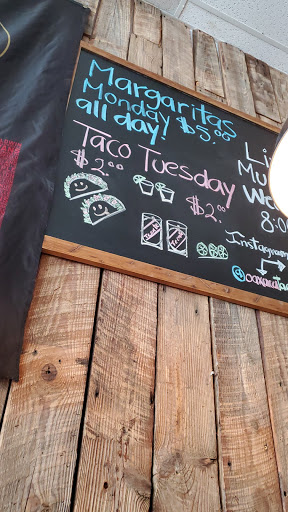 Margaritas
Monday $5.00
all day!
Taco Tuesday
$2.00
$2.00
Li
Mu
We
8:0
Instagram